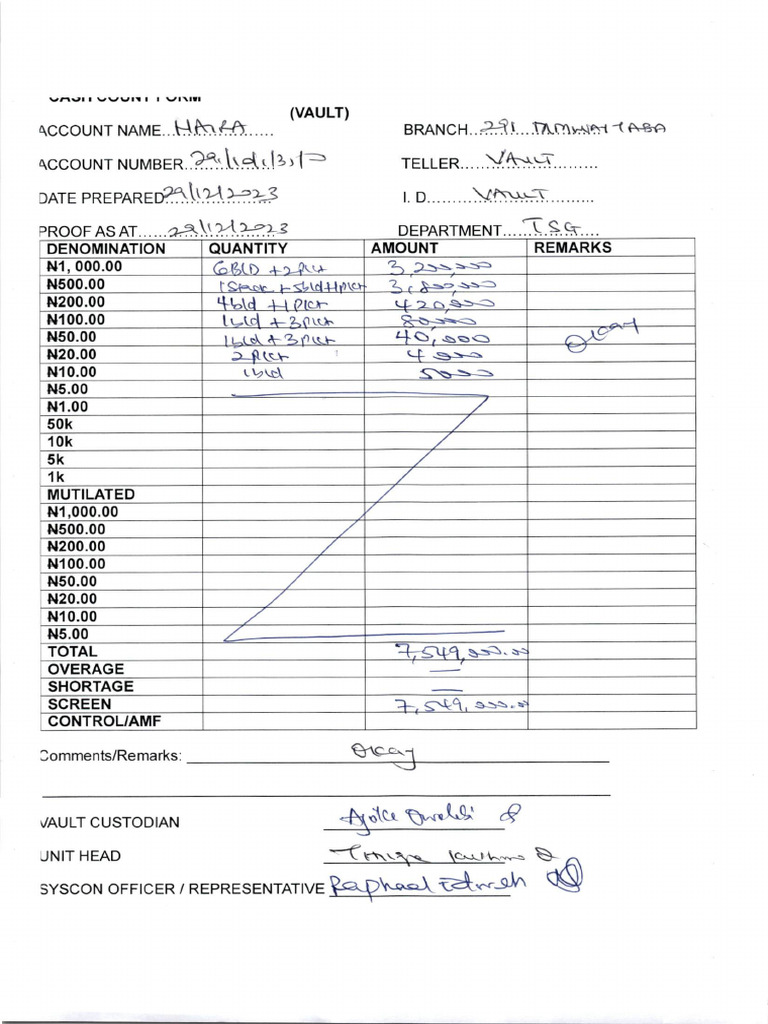 CASH COUNT FORM
(VAULT)
ACCOUNT NAME...NAIRA............ BRANCH...291..............
ACCOUNT NUMBER.................. TELLER.....VAULT.............
DATE PREPARED 29/12/2023 I. D........VAULT............
PROOF AS AT......29/12/2023 DEPARTMENT....TSG....
DENOMINATION QUANTITY AMOUNT REMARKS
₦1, 000.00 6BLD +2Plct 3,200,000
₦500.00 1Stack + 5bld+1plct 3,800,000
₦200.00 4bld +1Plct 420,000
₦100.00 1bld + 3plct 80,000
₦50.00 1bld + 3plct 40,000 Okay
₦20.00 2plct 4000
₦10.00 1bld 5000
₦5.00
₦1.00
50k
10k
5k
1k
MUTILATED
₦1,000.00
₦500.00
₦200.00
₦100.00
₦50.00
₦20.00
₦10.00
₦5.00
TOTAL 7,549,000.00
OVERAGE —
SHORTAGE —
SCREEN 7,549,000.00
CONTROL/AMF
Comments/Remarks: Okay
VAULT CUSTODIAN Ajoke
UNIT HEAD
SYSCON OFFICER / REPRESENTATIVE Raphael